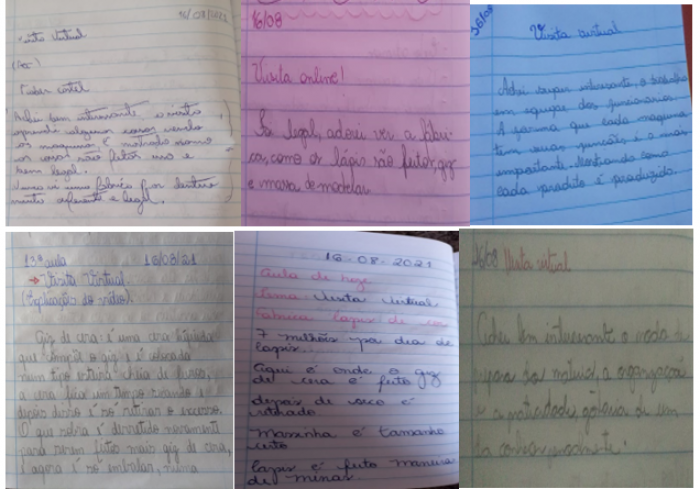 16/08/2021
Visita virtual
Achei bem interessante, a visita
aprendi algumas coisas vendo
as maquinas
as coisas são feitas
bem legal.
uma fábrica por dentro
e legal.
16/08
Visita online!
legal, adorei ver a fábri-
ca, como os lápis são feitos, giz
e massa de modelar
16/08
Visita virtual
Achei super interessante, o trabalho
em equipe dos funcionários
A forma que cada maquina
tem suas funções, é o mais
importante. Mostrando como
cada produto é produzido.
13ª aula 16/08/21
→ Visita Virtual.
(Explicações do vídeo).
Giz de cera: é uma cera líquida
que compõe o giz e é colocada
num tipo esteira cheia de furos,
a cera fica um tempo secando e
depois disso é só retirar o excesso.
O que sobra é derretido novamente
para serem feitos mais giz de cera,
e agora é só embalar, numa
16-08-2021
Aula de hoje
Tema: visita virtual
Fabrica lapis de cor
7 milhões por dia de
lapis..
Aqui é onde o giz
de cera é feito
depois de seco é
retirado
Massinha é tamanho
certo
Lapis é feito maneira
de minas.
16/08 Visita virtual
Achei bem interessante o modo de
dos materiais, a organização
e a